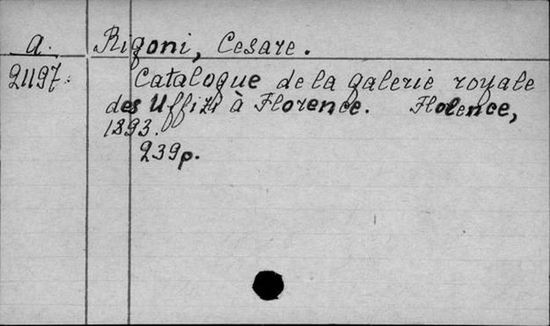 a. Rigoni, Cesare.
21197. Catalogue de la galerie royale
des Uffizi à Florence. Florence,
1893.
239p.